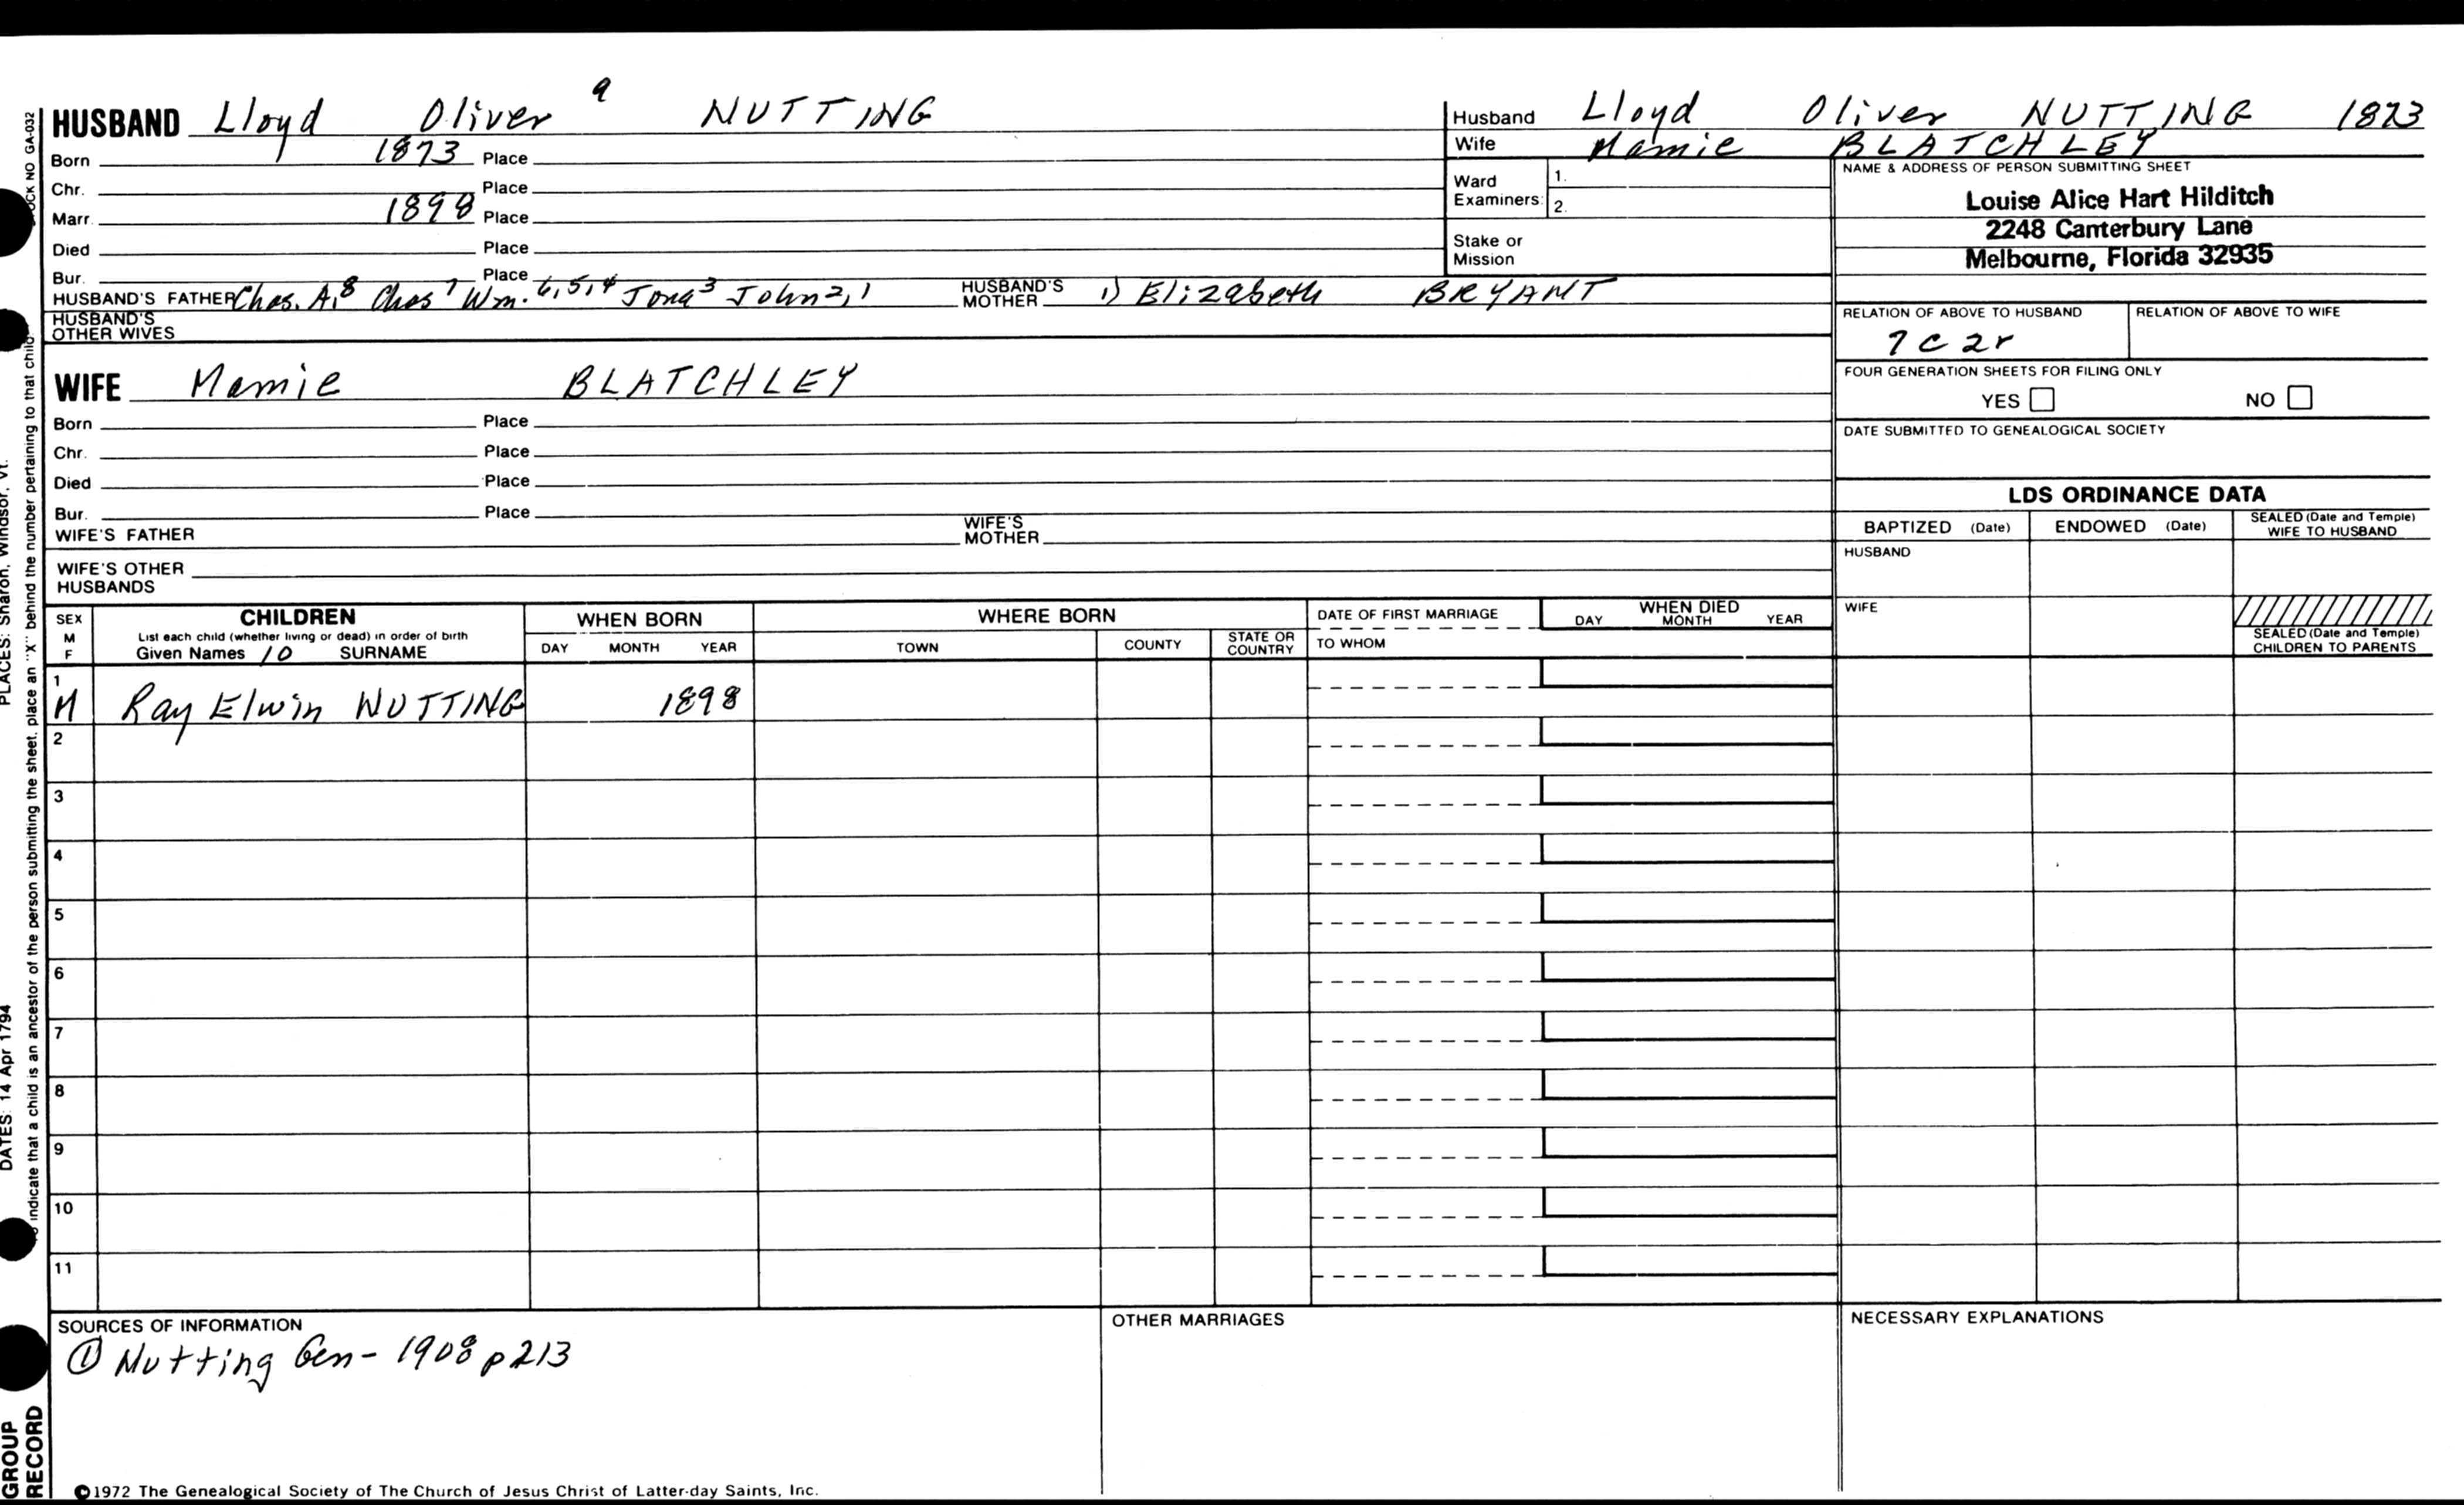 HUSBAND Lloyd Oliver 9 NUTTING
Born 1873 Place
Chr. Place
Marr. 1898 Place
Died Place
Bur. Place
HUSBAND'S FATHER Chas. A,8 Chas7 Wm. 6,5,4 Jona3 John2,1 HUSBAND'S MOTHER 1) Elizabeth BRYANT
HUSBAND'S OTHER WIVES
Husband Lloyd Oliver NUTTING 1873
Wife Mamie BLATCHLEY
Ward Examiners: 1.
2.
Stake or Mission
NAME & ADDRESS OF PERSON SUBMITTING SHEET
Louise Alice Hart Hilditch
2248 Canterbury Lane
Melbourne, Florida 32935
RELATION OF ABOVE TO HUSBAND RELATION OF ABOVE TO WIFE
7 C 2r
FOUR GENERATION SHEETS FOR FILING ONLY
YES NO
DATE SUBMITTED TO GENEALOGICAL SOCIETY
WIFE Mamie BLATCHLEY
Born Place
Chr. Place
Died Place
Bur. Place
WIFE'S FATHER WIFE'S MOTHER
WIFE'S OTHER HUSBANDS
LDS ORDINANCE DATA
BAPTIZED (Date) ENDOWED (Date) SEALED (Date and Temple) WIFE TO HUSBAND
HUSBAND
WIFE
SEALED (Date and Temple) CHILDREN TO PARENTS
SEX M F
CHILDREN
List each child (whether living or dead) in order of birth
Given Names 10 SURNAME
WHEN BORN
DAY MONTH YEAR
WHERE BORN
TOWN COUNTY STATE OR COUNTRY
DATE OF FIRST MARRIAGE
TO WHOM
WHEN DIED
DAY MONTH YEAR
1
M Ray Elwin NUTTING 1898
2
3
4
5
6
7
8
9
10
11
SOURCES OF INFORMATION
① Nutting Gen- 1908 p213
OTHER MARRIAGES
NECESSARY EXPLANATIONS
©1972 The Genealogical Society of The Church of Jesus Christ of Latter-day Saints, Inc.
STOCK NO GA-032
To indicate that a child is an ancestor of the person submitting the sheet, place an "X" behind the number pertaining to that child.
PLACES: Sharon, Windsor, Vt.
DATES: 14 Apr 1794
GROUP
RECORD